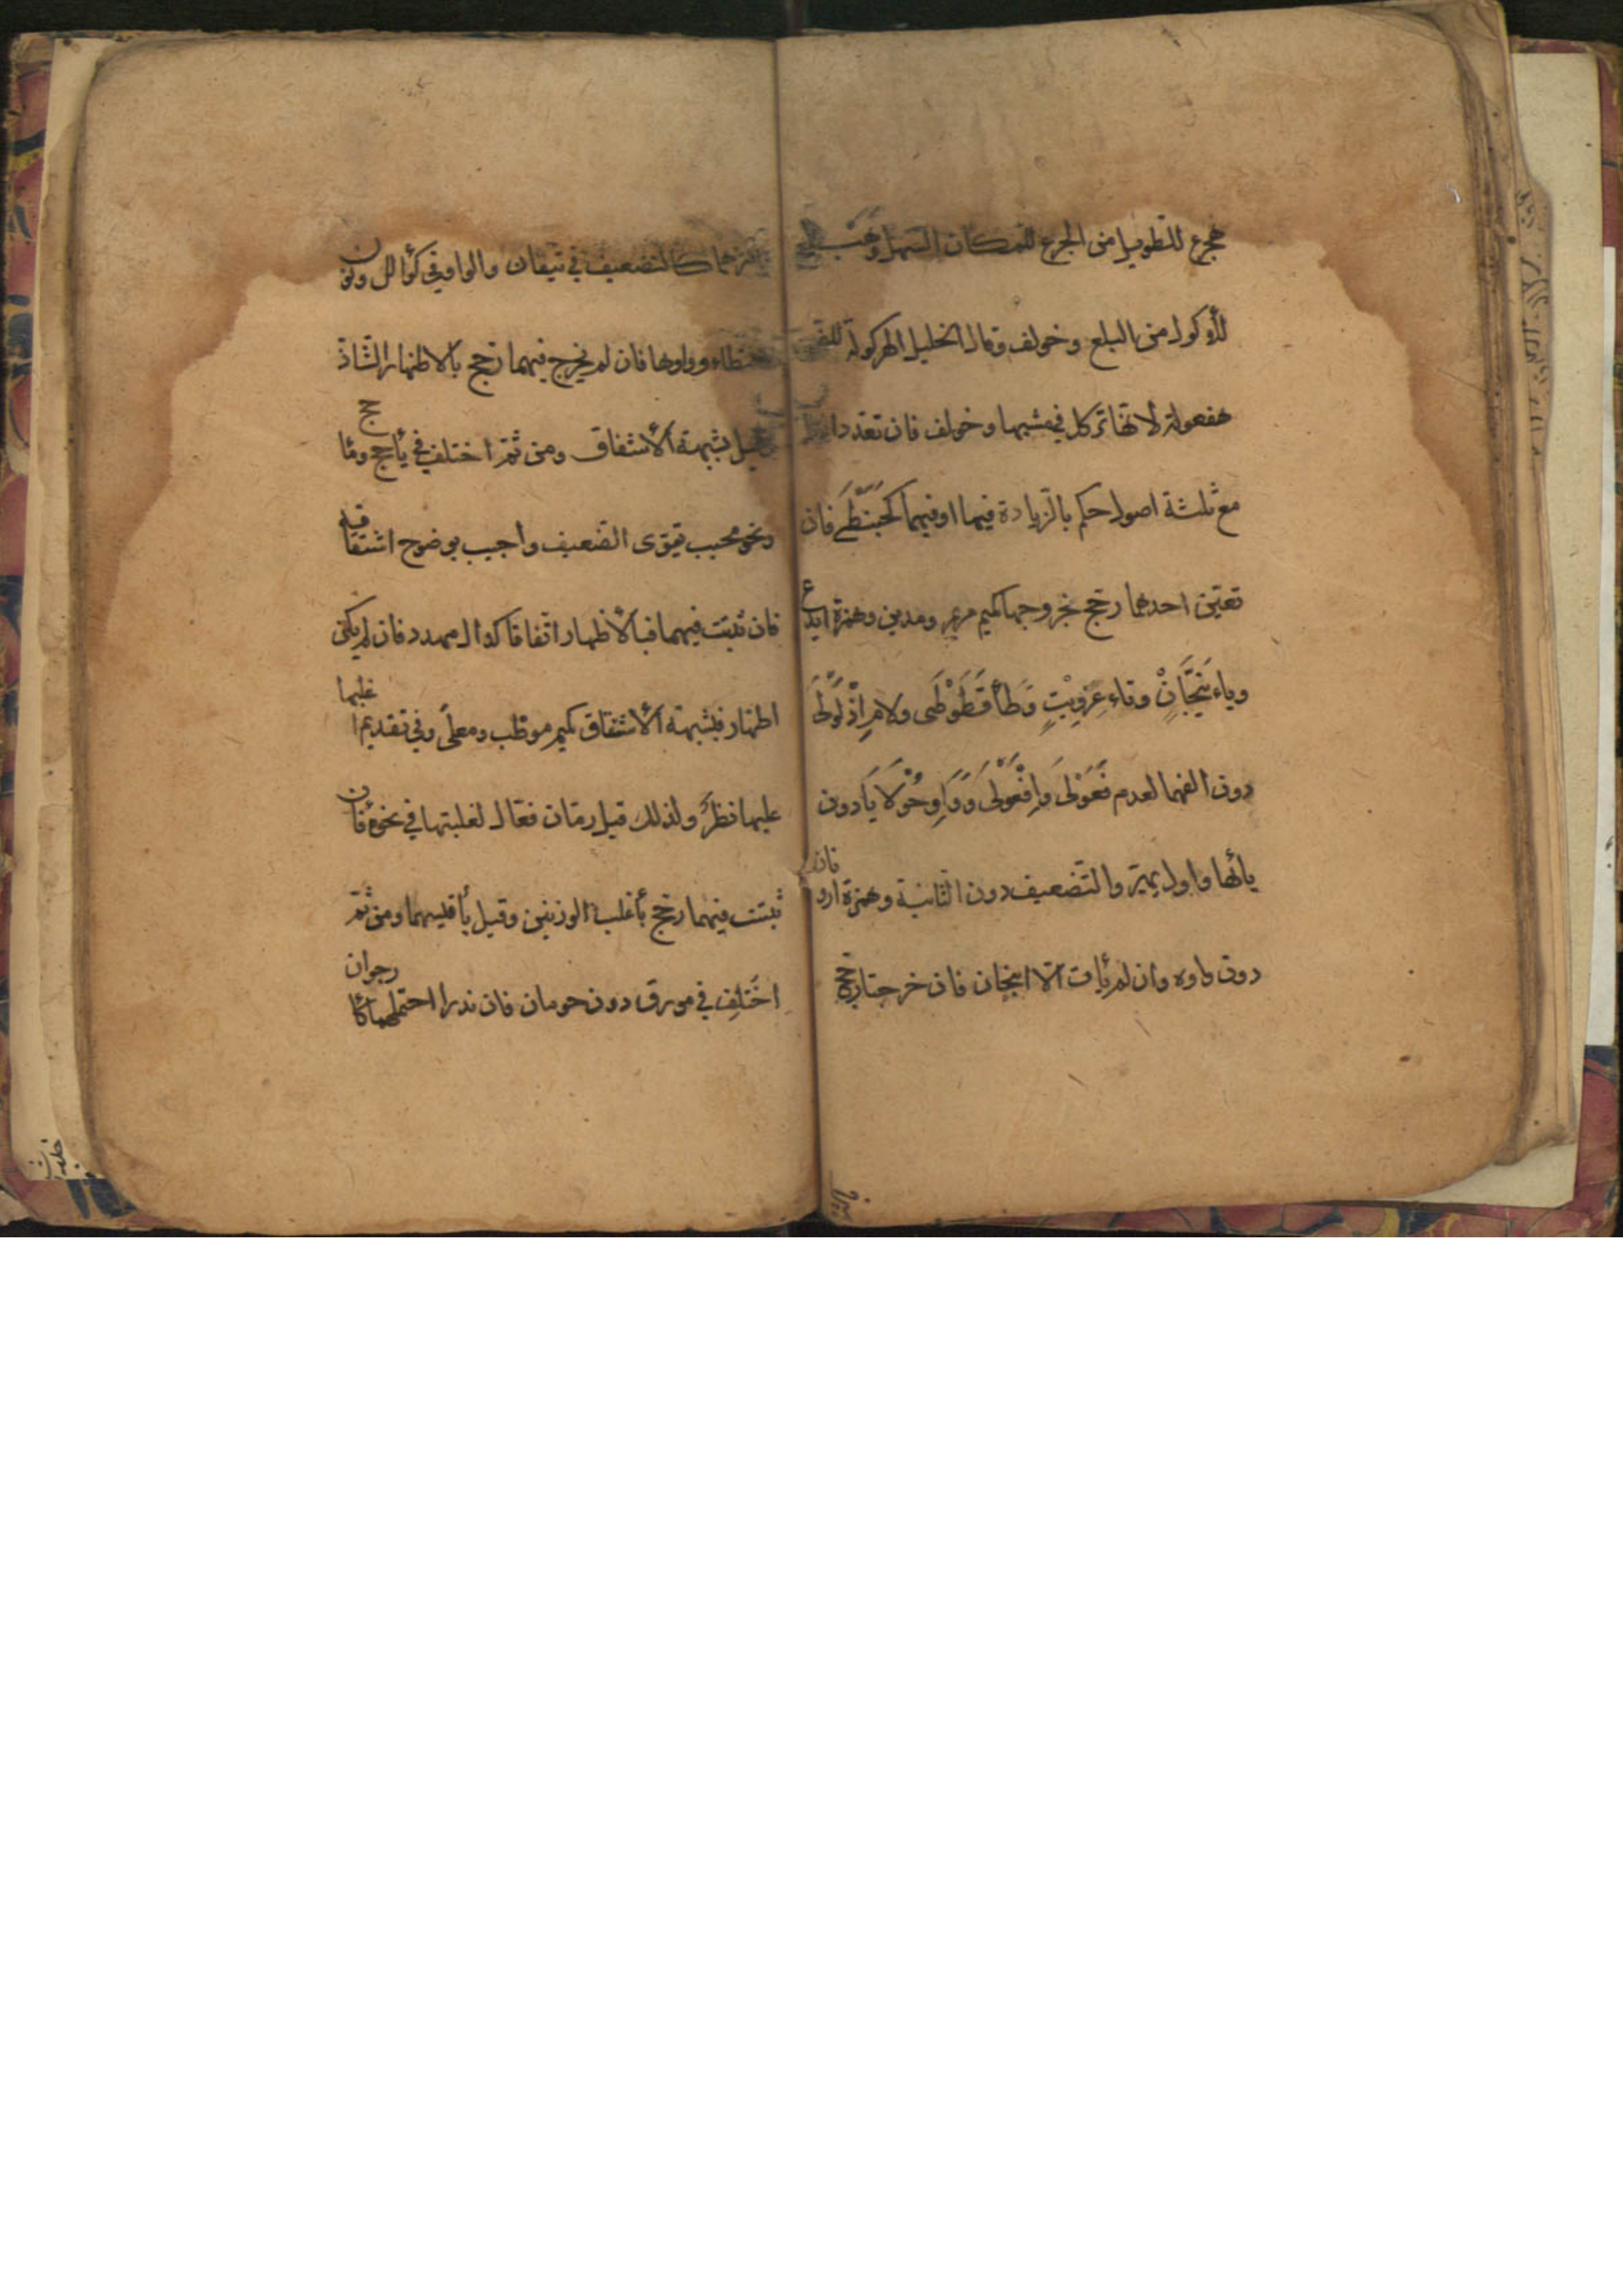 هجرع للطويل من الجرع للمكان السهل وهبلع
للأكول من البلع وخولف وقال الخليل الهركولة
هفعولة لانها تركل في مشيها وخولف فان تعدد
مع ثلثة اصول حكم بالزيادة فيها او فيهما كحبنطى فان
تعين احدهما رجح بخروجها كميم مريم ومدين وهمزة ايدع
وياء تيحان وتاء عزويت وطاء قطوطى ولام اذلولى
دون الفهما لعدم فعولى وافعولى وواو حولايا دون
يائها واول يهير والتضعيف دون الثانية وهمزة ارو
نان
دون واوه وان لم يأت الا انبجان فان خرجتا رجح
كالتضعيف في تيفان والواو في كوألل ونون
حنطاء وواوها فان لم يخرج فيهما رجح بالاظهار الشاذ
وقيل بشبهة الأشتقاق ومن ثم اختلف في يأجج ومأجج
ونحو محبب يقوى الضعيف واجيب بوضوح اشتقاقه
فان ثبتت فيهما فبالأظهار اتفاقا كدال مهدد فان لم يكن
اظهار فبشبهة الأشتقاق كميم موظب ومعلى وفي تقديم اغلبهما
عليها نظر ولذلك قيل رمان فعال لغلبتها في نحوه فان
ثبتت فيهما رجح بأغلب الوزنين وقيل بأقيسهما ومن ثم
اختلف في مورق دون حومان فان ندرا احتملهما كأرجوان